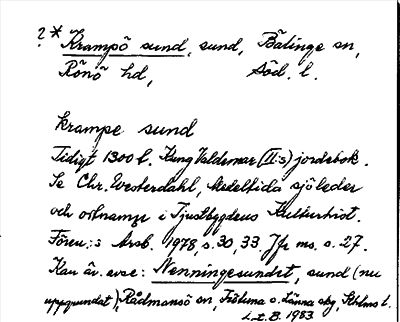 ?* Krampö sund, sund, Bälinge sn,
Rönö hd, Söd. l.
krampe sund
Tidigt 1300 t. Kung Valdemar (II:s) jordebok.
Se Chr. Westerdahl, Medeltida sjöleder
och ortnamn i Tjustbygdens Kulturhist.
Fören:s Årsb. 1978, s. 30, 33. Jfr ms. s. 27.
Kan äv. avse: Nenningesundet, sund (nu
uppgrundat), Rådmansö sn, Frötuna o. Länna skg, Sthlms l.
L. t. B. 1983